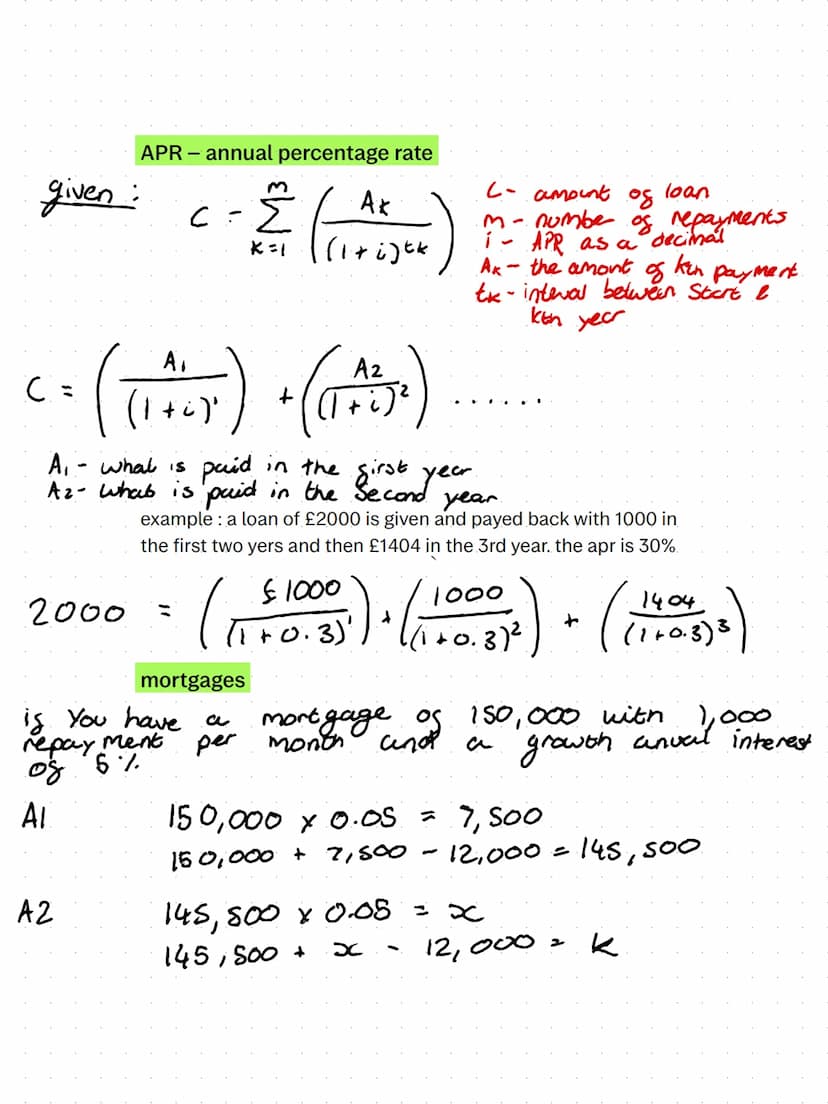 APR – annual percentage rate
given :
C = m Σ K=1 ( AK / (1 + i)^tk )
C - amount of loan
m - number of repayments
i - APR as a decimal
AK - the amont of kth payment
tK - inteval between Start &
kth year
C = ( A1 / (1 + i)^1 ) + ( A2 / (1 + i)^2 ) ......
A1 - what is paid in the first year
A2 - what is paid in the Second year
example : a loan of £2000 is given and payed back with 1000 in
the first two yers and then £1404 in the 3rd year. the apr is 30%
2000 = ( £1000 / (1 + 0.3)^1 ) + ( 1000 / (1 + 0.3)^2 ) + ( 1404 / (1 + 0.3)^3 )
mortgages
if You have a mortgage of 150,000 with 1,000
repayment per month and a growth anual interest
of 5%
A1 150,000 x 0.05 = 7,500
150,000 + 7,500 - 12,000 = 145,500
A2 145,500 x 0.05 = x
145,500 + x - 12,000 = k